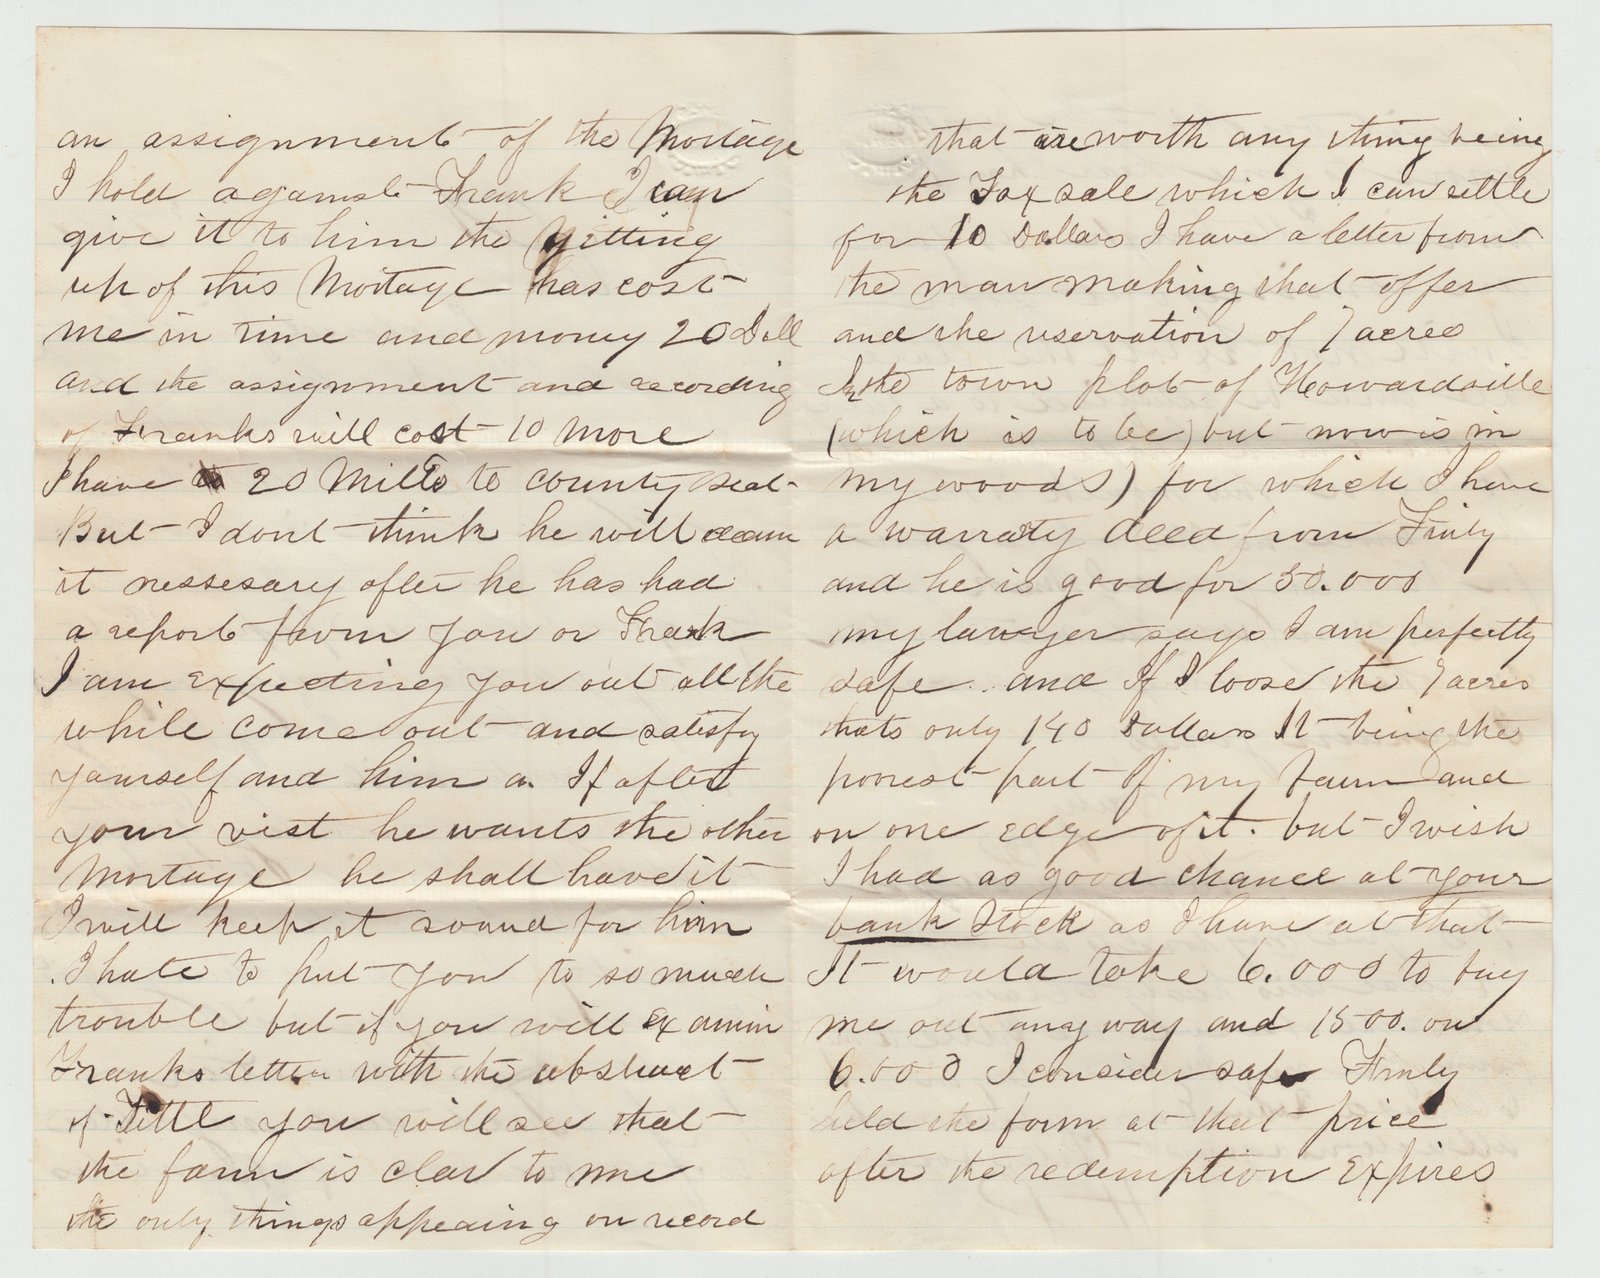 an assignment of the Mortage
I hold against Frank I can
give it to him the gitting
up of this Mortage has cost
me in time and money 20 Doll
and the assignment and recording
of Franks will cost 10 more
I have 20 Mills to county seat
But I dont think he will deam
it nessesary after he has had
a report from you or Frank
I am expecting you out all the
while come out and satisfy
yourself and him a. If after
your vist he wants the other
Mortage he shall have it
I will keep it sound for him
I hate to put you to so much
trouble but if you will examin
Franks letter with the abstract
of Tittl you will see that
the farm is clar to me
the only things appearing on record
that are worth any thing being
the Tax sale which I can settle
for 10 Dollars I have a letter from
the man making that offer
and the reservation of 7 acres
In the town plot of Howardsville
(which is to be) but now is in
my woods) for which I have
a warraty deed from Finly
and he is good for 50.000
my lawyer says I am perfectly
safe .. and If I loose the 7 acres
thats only 140 Dollars It being the
poorest part of my Farm and
on one edge of it. but I wish
I had as good chance at your
bank stock as I have at that
It would take 6.000 to buy
me out any way and 1500. on
6.000 I consider safe Finly
held the farm at that price
after the redemption expires